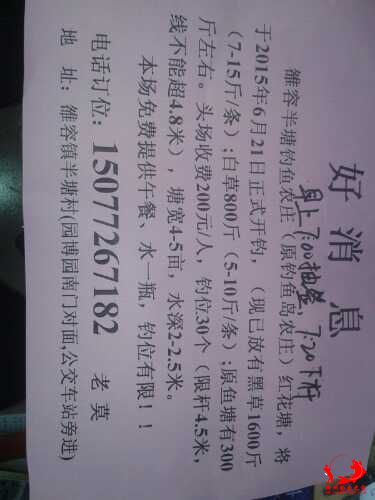 好消息
早上7:00抽签,7:20下杆
雒容半塘钓鱼农庄(原钓鱼岛农庄)红花塘,将
于2015年6月21日正式开钓,(现已放有黑草1600斤
(7-15斤/条);白草800斤(5-10斤/条);原鱼塘有300
斤左右。头场收费200元/人,钓位30个(限杆4.5米,
线不能超4.8米),塘宽4-5亩,水深2-2.5米。
本场免费提供午餐、水一瓶,钓位有限!!
电话订位:15077267182 老莫
地 址:雒容镇半塘村(园博园南门对面,公交车站旁进)